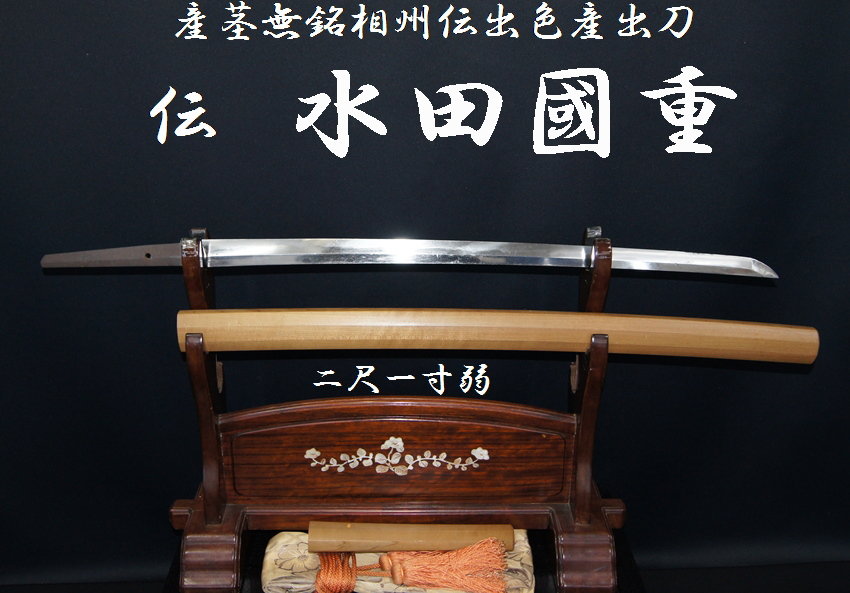 産茎無銘相州伝出色産出刀
伝 水田國重
二尺一寸弱